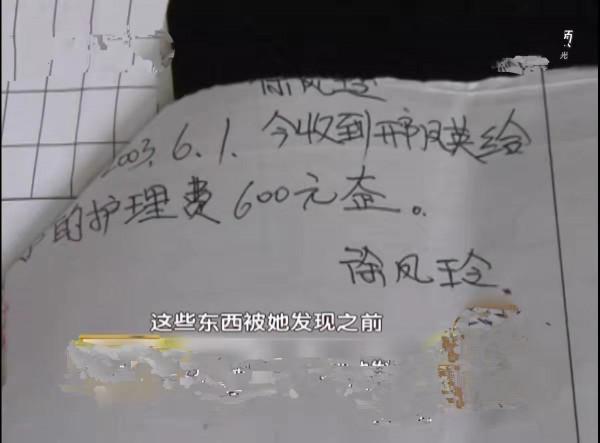 徐凤玲
2003.6.1.今收到邢凤英给
的护理费600元整。
徐凤玲
这些东西被她发现之前